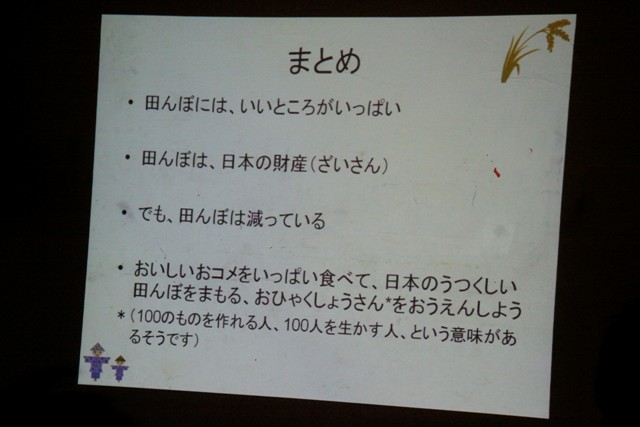 まとめ
• 田んぼには、いいところがいっぱい
• 田んぼは、日本の財産（ざいさん）
• でも、田んぼは減っている
• おいしいおコメをいっぱい食べて、日本のうつくしい
田んぼをまもる、おひゃくしょうさん*をおうえんしよう
*（100のものを作れる人、100人を生かす人、という意味があ
るそうです）